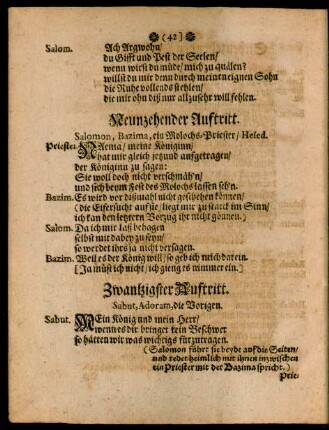 (42)
Salom. Ach Argwohn/
du Gifft und Pest der Seelen/
wenn wirst du müde/ mich zu quälen?
willst du mir denn durch meinen eignen Sohn
die Ruhe vollends stehlen/
die mir ohn diß nur allzusehr will fehlen.
Neunzehender Aufftritt.
Salomon, Bazima, ein Molochs-Priester/ Heled.
Priester. NAema/ meine Königinn/
hat mir gleich jetzund auffgetragen/
der Königinn zu sagen:
Sie woll doch nicht verschmäh'n/
und sich beym Fest des Molochs lassen seh'n.
Bazim. Es wird vor dißmahl nicht geschehen können/
(die Eifersucht auf sie/ liegt mir zu starck im Sinn/
ich kan den letztern Vorzug ihr nicht gönnen.)
Salom. Da ich mir laß behagen
selbst mit dabey zu seyn/
so werdet ihrs ja nicht versagen.
Bazim. Weil es der König will/ so geb ich mich darein.
[Ja müst ich nicht/ ich gieng es nimmer ein.]
Zwantzigster Aufftritt.
Sabut, Adoram, die Vorigen.
Sabut. MEin König und mein Herr/
wenn es dir bringet kein Beschwer
so hätten wir was wichtigs fürzutragen.
(Salomon führt sie beyde auf die Seiten/
und redet heimlich mit ihnen inzwischen
ein Priester mit der Bazima spricht.)
Prie-